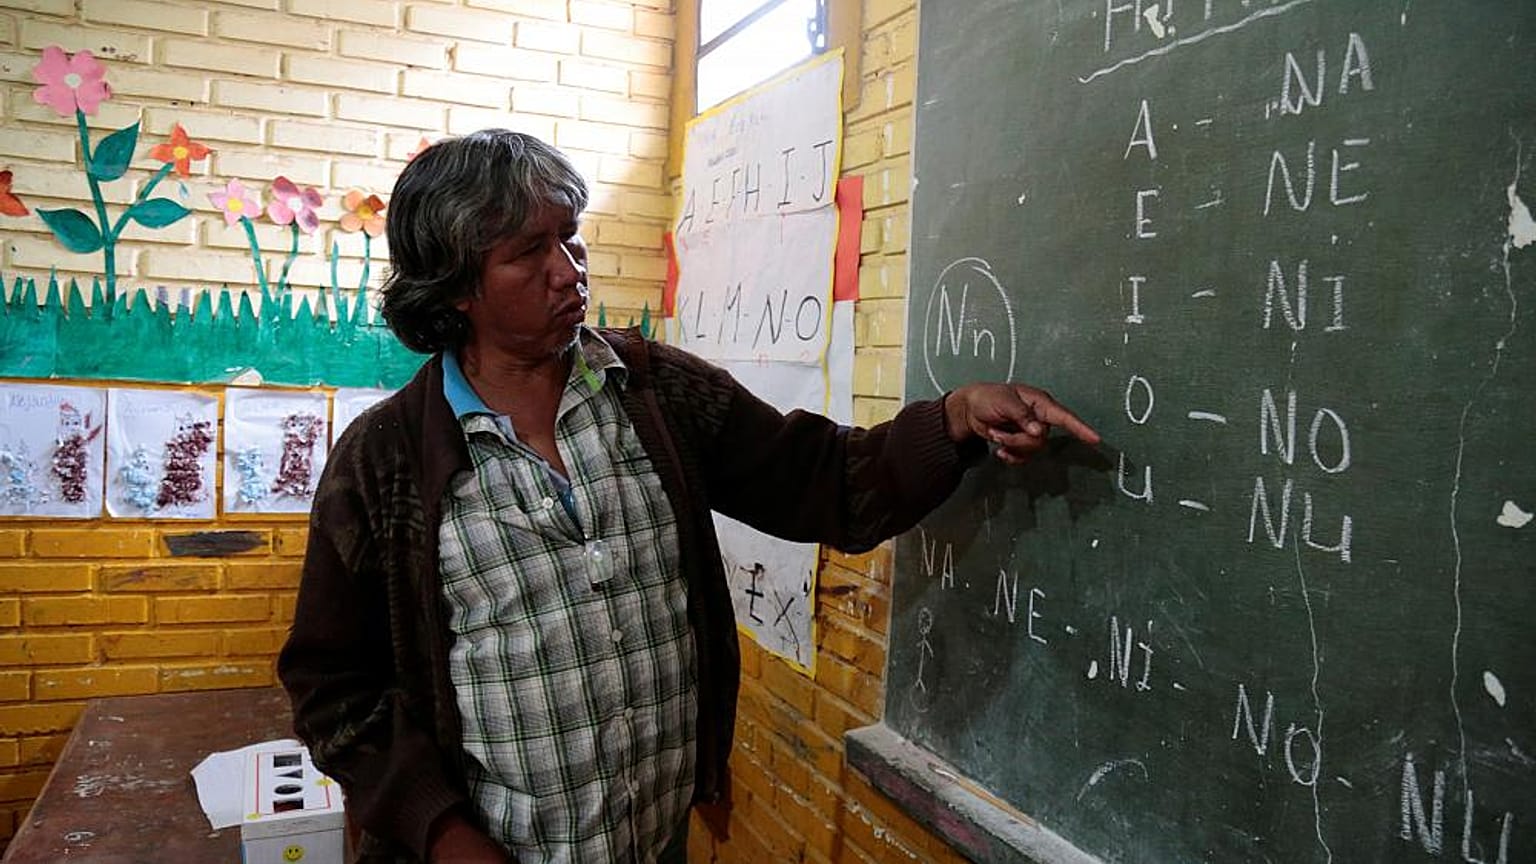 A - NA
E - NE
I - NI
O - NO
U - NU
Nn
NA - NE - NI - NO - NU
A E F H I J
K L M N O